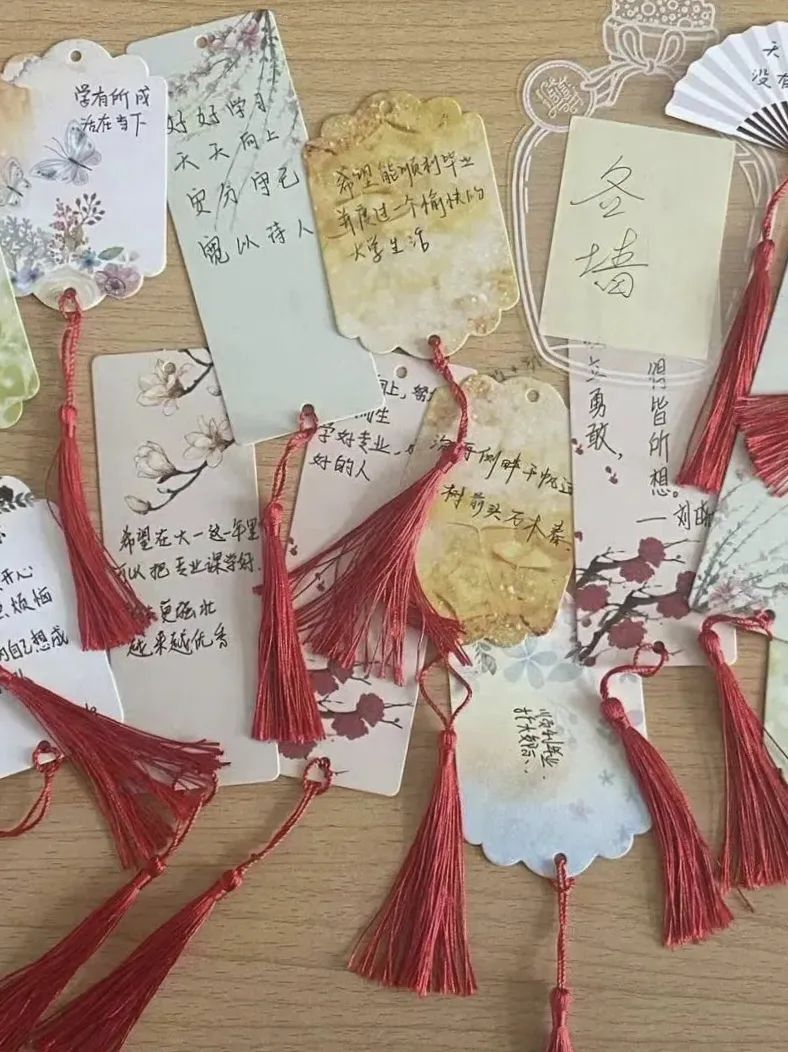 学有所成
活在当下
好好学习
天天向上
安分守己
宽以待人
希望能顺利毕业
并度过一个愉快的
大学生活
签
墙
天
没有
立勇敢，
得皆所想。
一刘
向上，努
学好专业，
好的人
沉舟侧畔千帆过
树前头万木春
希望在大一这一年里
可以把专业课学好
更强壮
越来越优秀
开心
烦恼
自己想成
顺利毕业